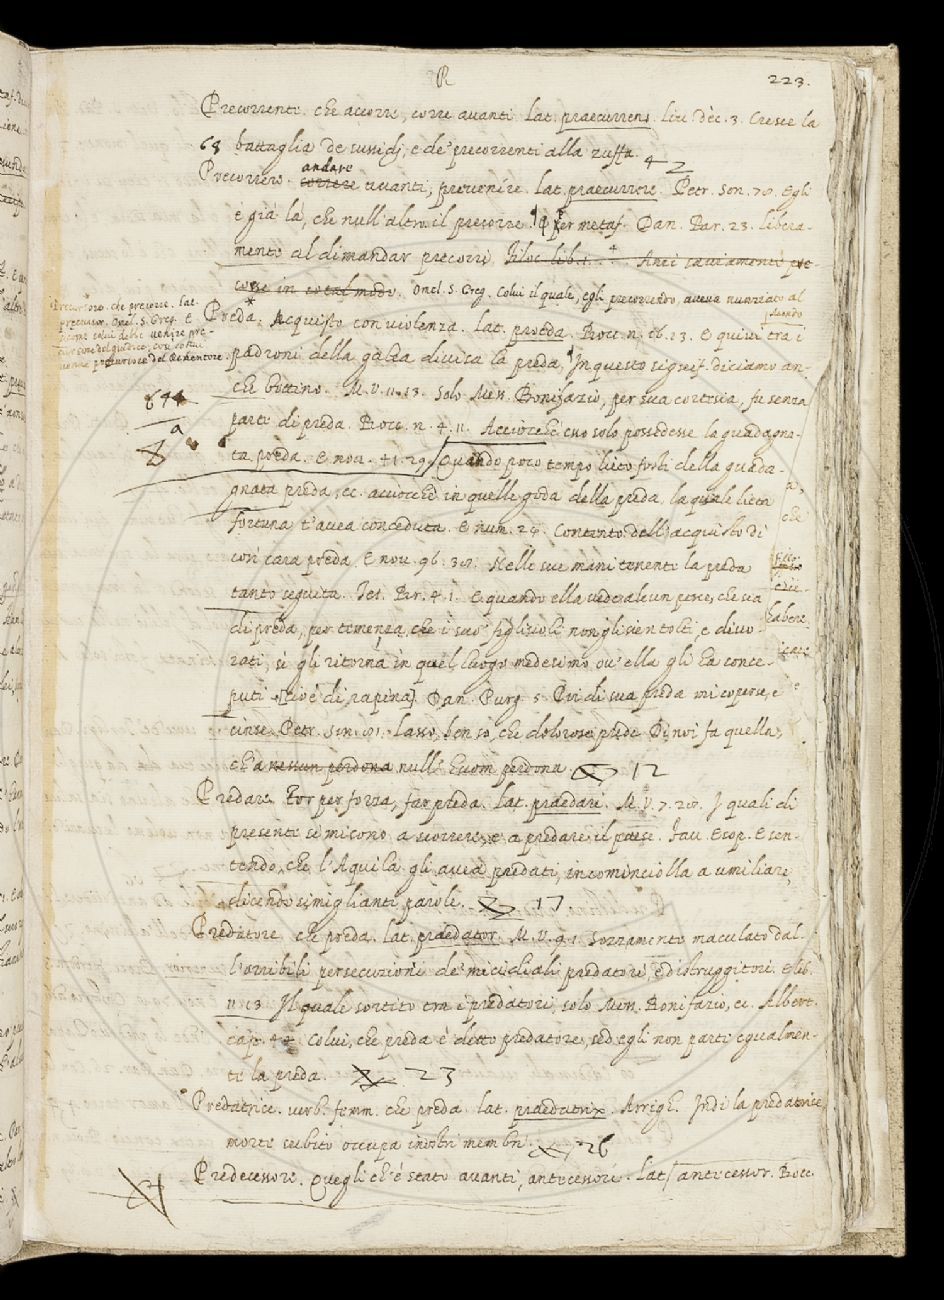 R
223.
Precorrente. che accorre, corre avanti. lat. praecurrens. Liv. dec. 3. Cresce la
68 battaglia de' sussidj, e de' precorrenti alla zuffa. 4 2
andare
Precorrere. correre avanti, prevenire. lat. praecurrere. Petr. Son. 70. Egli
è già là, che null'altro il precorre. ¶ per metaf. Dan. Par. 23. libera-
mente al dimandar precorre. Filoc. lib. 4. Anzi saviamente pre-
corse in cotal modo. Omel. S. Greg. Colui il quale, egli precorrendo, aveva nunziato al
Precursore. che precorre. lat.
precursor. Omel. S. Greg. E
sicome colui debbe venire pre-
cursore del giudice, così
precursore del Redentore.
Preda. Acquisto con violenza. lat. praeda. Bocc. n. 16. 13. E quivi tra i
padroni della galea divisa la preda. ¶ In questo signif. diciamo an-
che bottino. M. V. 11. 13. Solo Mes. Bonifazio, per sua cortesia, fu senza
644
parte di preda. Bocc. n. 4. 11. Acciocchè esso solo possedesse la guadagna-
a
8
ta preda. E nov. 41. 29. Quando poco tempo lieto fosti della guada-
gnata preda, ec. acciocchè in quelle goda della preda, la quale lieta
fortuna t'avea conceduta. E num. 29. Contento dell'acquisto di
che
così cara preda. E nov. 96. Nelle sue mani tenente la preda
tanto seguita. Tes. Br. 4. 1. E quando ella vede alcun pesce, che sia
di preda, per temenza, che i suoi figliuoli non gli sien tolti, e divo-
rati, sì gli ritorna in quel luogo medesimo, ov'ella gli ha conce-
puti [cioè di rapina]. Dan. Purg. 5. Poi di sua preda mi coperse, e
cinse. Petr. Son. Lasso, ben so, che dolorose prede Di noi fa quella,
ch'a nessun perdona null'huom perdona. 12
Predare. Tor per forza, far preda. lat. praedari. M. V. 7. I quali di
presente si misono a scorrere, e a predare il paese. Fav. Esop. E sen-
tendo, che l'Aquila gli avea predati, incominciolla a umiliare,
dicendo simiglianti parole. 17
Predatore. che preda. lat. praedator. M. V. 9. 1. Sozzamente maculato dal-
l'orribili persecuzioni de' micidiali predatori, e distruggitori. E lib.
11. 13. Il quale sortito tra i predatori, solo Mes. Bonifazio, ec. Albert.
cap. 44. Colui, che preda è detto predatore, sed egli non parte egualmen-
te la preda. 23
Predatrice. verb. femm. che preda. lat. praedatrix. Arrigh. Indi la predatrice
morte subito occupa membri. 26
Predecessore. Quegli ch'è stato avanti, antecessore. lat. antecessor. Bocc.